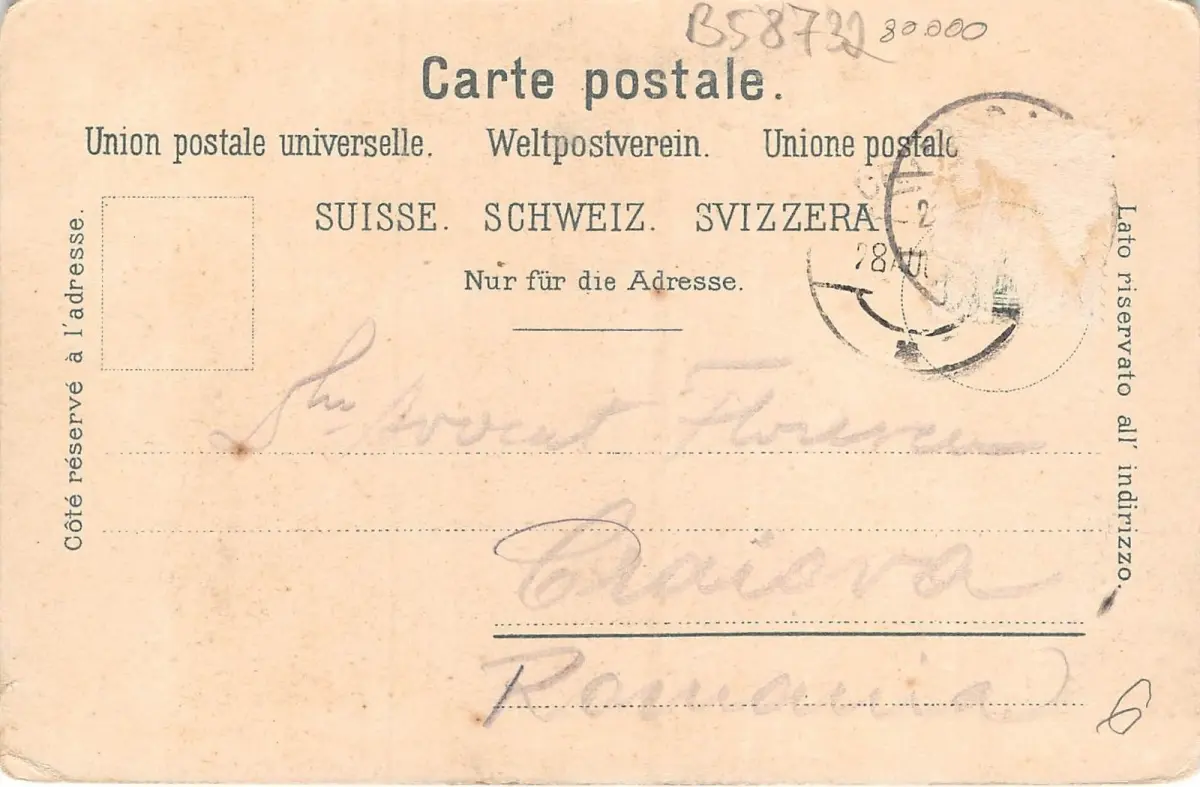 B58732 30.000
Carte postale.
Union postale universelle. Weltpostverein. Unione postale
SUISSE. SCHWEIZ. SVIZZERA
Nur für die Adresse.
Côté réservé à l'adresse.
Lato riservato all' indirizzo.
28 AUG
Avocat Florescu
Craiova
Romania
6